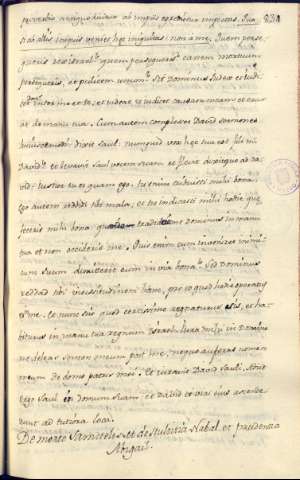 231
proverbio antiquo dicitur ab impijs egredietur impietas. Sua
si ab alijs impijs veniet hęc iniquitas: non a me. Quem perse
queris rex israel? quem persequeris? canem mortuum
persequeris, et pulicem unum? Sit Dominus Judex et iudicet
inter me et te, et videat et iudicet causam meam et eruat
de manu tua. Cum autem complesset David sermones
huiuscemodi: dixit Saul: numquid vox hęc tua est fili mi
David? et levavit Saul vocem suam et flevit dixitque ad Da
vid: Iustior tu es quam ego: tu enim tribuisti mihi bona:
ego autem reddidi tibi mala, et tu indicasti mihi hodie quę
feceris mihi bona: quomodo tradiderit me Dominus in manu
tua et non occideris me. Quis enim cum invenerit inimi
cum suum dimittet eum in via bona? Sed Dominus
reddat tibi vicissitudinem hanc, pro eo quod hodie operatus es
in me. Et nunc scio quod certissime regnaturus sis, et ha
biturus in manu tua regnum Israel: Iura mihi in Domino
ne deleas semen meum post me, neque auferas nomen
meum de domo patris mei. Et iuravit David Sauli. Abijt
ergo Saul in domum suam: et David et viri eius ascende
runt ad tutiora loca.
De morte Samuelis et de stultitia Nabal et prudentia
Abigail.